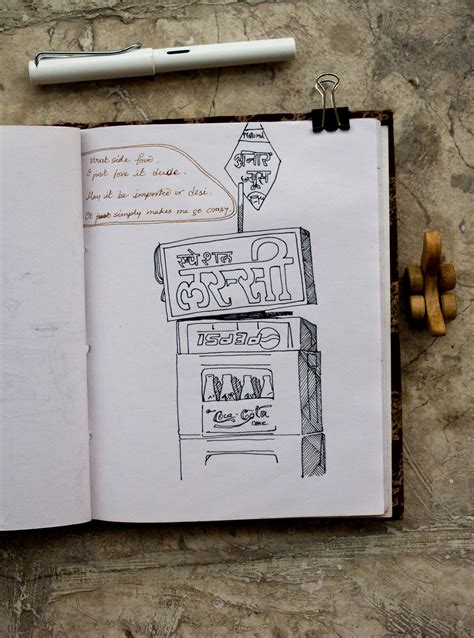 Street side food.
I just love it dude.
May it be imported or desi.
It just simply makes me go crazy
Natural
अनार
ज्यूस
स्पेशल
लस्सी
PEPSI
Coca-Cola